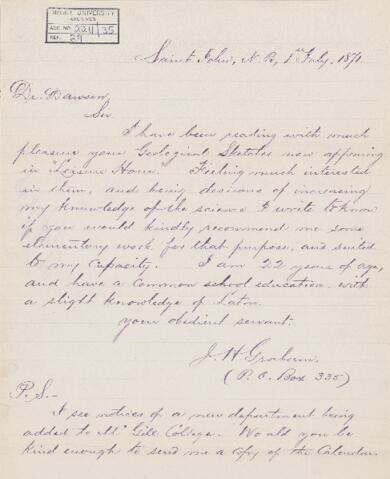 McGILL UNIVERSITY
ARCHIVES
ACC. NO. 2211/35
REF. 29
Saint John, N.B., 1st July, 1871.
Dr. Dawson,
Sir.
I have been reading with much
pleasure your Geological Sketches now appearing
in "Leisure Hour." Feeling much interested
in them, and being desirous of increasing
my knowledge of the science I write to know
if you would kindly recommend me some
elementary work for that purpose, and suited
to my capacity. I am 22 years of age,
and have a common school education with
a slight knowledge of Latin.
your obedient servant.
J. H. Graham.
(P. O. Box 335)
P. S.-
I see notices of a new department being
added to McGill College. Would you be
kind enough to send me a copy of the Calendar.